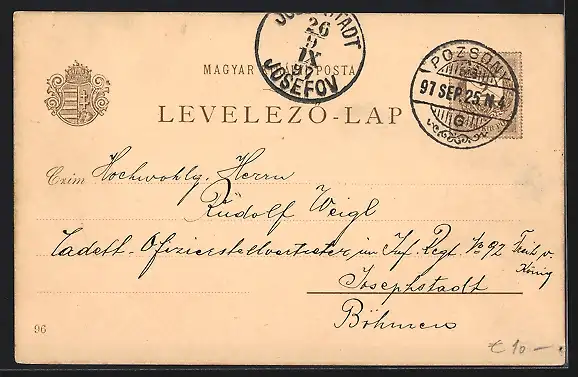 JOSEFSTADT
26
9
IX
97
JOSEFOV
MAGYAR KIR. POSTA
POZSONY
97 SEP. 25 N. 4
G
LEVELEZŐ-LAP
Czim Hochwohlg. Herrn
Rudolf Weigl
Cadett-Offizierstellvertreter im Inf. Regt. № 92 Freih. v.
König
Josephstadt
Böhmen
96
€ 10 —